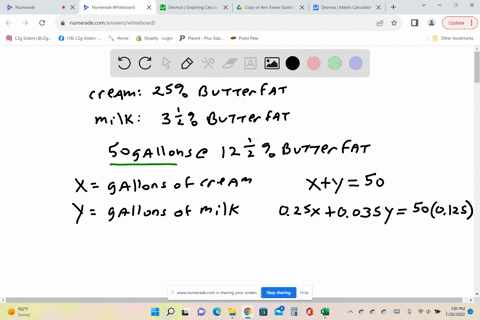 Numerade
Numerade Whiteboard
Desmos | Graphing Calculator
Copy of Ann Xavier Gantert
Desmos | Matrix Calculator
numerade.com/answers/whiteboard/
Update
Home
Shopify - Login
Placeit - Plus Size...
Pistol Pete
Other bookmarks
cream: 25% Butterfat
milk: 3 1/2 % Butterfat
50 gallons @ 12 1/2 % Butterfat
X = gallons of cream
x+y=50
Y = gallons of milk
0.25x+0.035y=50(0.125)
www.numerade.com is sharing your screen.
Stop sharing
Hide
Sunny
1:01 PM
7/26/2022